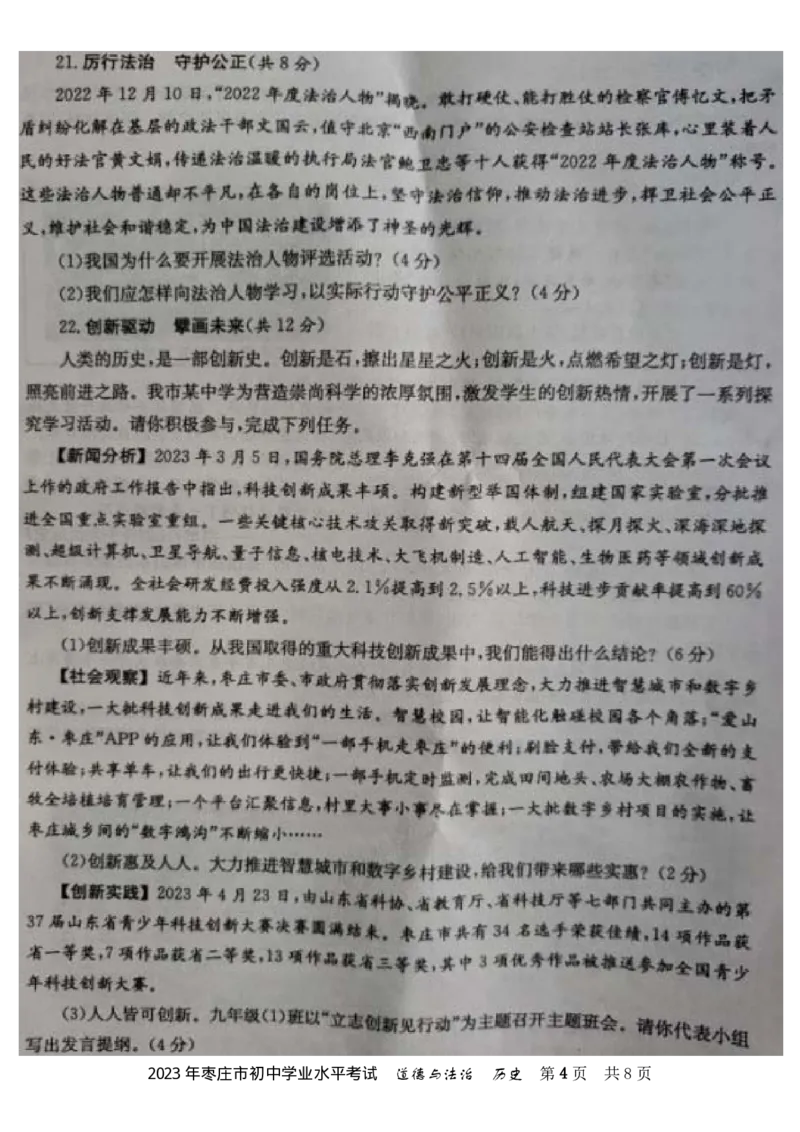 21.厉行法治　守护公正(共8分)
2022年12月10日,“2022年度法治人物”揭晓。敢打硬仗、能打胜仗的检察官傅忆文,把矛
盾纠纷化解在基层的政法干部文国云,值守北京“西南门户”的公安检查站站长张库,心里装着人
民的好法官黄文娟,传递法治温暖的执行局法官鲍卫忠等十人获得“2022年度法治人物”称号。
这些法治人物普通却不平凡,在各自的岗位上,坚守法治信仰,推动法治进步,捍卫社会公平正
义,维护社会和谐稳定,为中国法治建设增添了神圣的光辉。
(1)我国为什么要开展法治人物评选活动?(4分)
(2)我们应怎样向法治人物学习,以实际行动守护公平正义?(4分)
22.创新驱动　擘画未来(共12分)
人类的历史,是一部创新史。创新是石,擦出星星之火;创新是火,点燃希望之灯;创新是灯,
照亮前进之路。我市某中学为营造崇尚科学的浓厚氛围,激发学生的创新热情,开展了一系列探
究学习活动。请你积极参与,完成下列任务。
【新闻分析】2023年3月5日,国务院总理李克强在第十四届全国人民代表大会第一次会议
上作的政府工作报告中指出,科技创新成果丰硕。构建新型举国体制,组建国家实验室,分批推
进全国重点实验室重组。一些关键核心技术攻关取得新突破,载人航天、探月探火、深海深地探
测、超级计算机、卫星导航、量子信息、核电技术、大飞机制造、人工智能、生物医药等领域创新成
果不断涌现。全社会研发经费投入强度从2.1%提高到2.5%以上,科技进步贡献率提高到60%
以上,创新支撑发展能力不断增强。
(1)创新成果丰硕。从我国取得的重大科技创新成果中,我们能得出什么结论?(6分)
【社会观察】近年来,枣庄市委、市政府贯彻落实创新发展理念,大力推进智慧城市和数字乡
村建设,一大批科技创新成果走进我们的生活。智慧校园,让智能化触碰校园各个角落;“爱山
东·枣庄”APP的应用,让我们体验到“一部手机走枣庄”的便利;刷脸支付,带给我们全新的支
付体验;共享单车,让我们的出行更快捷;一部手机定时监测,完成田间地头、农场大棚农作物、畜
牧全培植培育管理;一个平台汇聚信息,村里大事小事尽在掌握;一大批数字乡村项目的实施,让
枣庄城乡间的“数字鸿沟”不断缩小……
(2)创新惠及人人。大力推进智慧城市和数字乡村建设,给我们带来哪些实惠?(2分)
【创新实践】2023年4月23日,由山东省科协、省教育厅、省科技厅等七部门共同主办的第
37届山东省青少年科技创新大赛决赛圆满结束。枣庄市共有34名选手荣获佳绩,14项作品获
省一等奖,7项作品获省二等奖,13项作品获省三等奖,其中3项优秀作品被推送参加全国青少
年科技创新大赛。
(3)人人皆可创新。九年级(1)班以“立志创新见行动”为主题召开主题班会。请你代表小组
写出发言提纲。(4分)
2023年枣庄市初中学业水平考试　道德与法治　历史　第4页　共8页